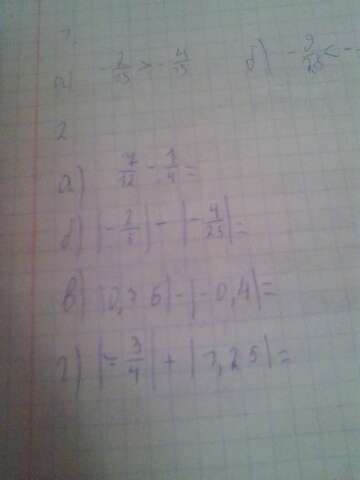 1.
а) -2/15 > -4/15 б) -9/25 < -
2
а) 7/12 - 1/4 =
б) |-2/5| - |-4/25| =
в) |0,36| - |-0,4| =
г) |-3/4| + |1,25| =